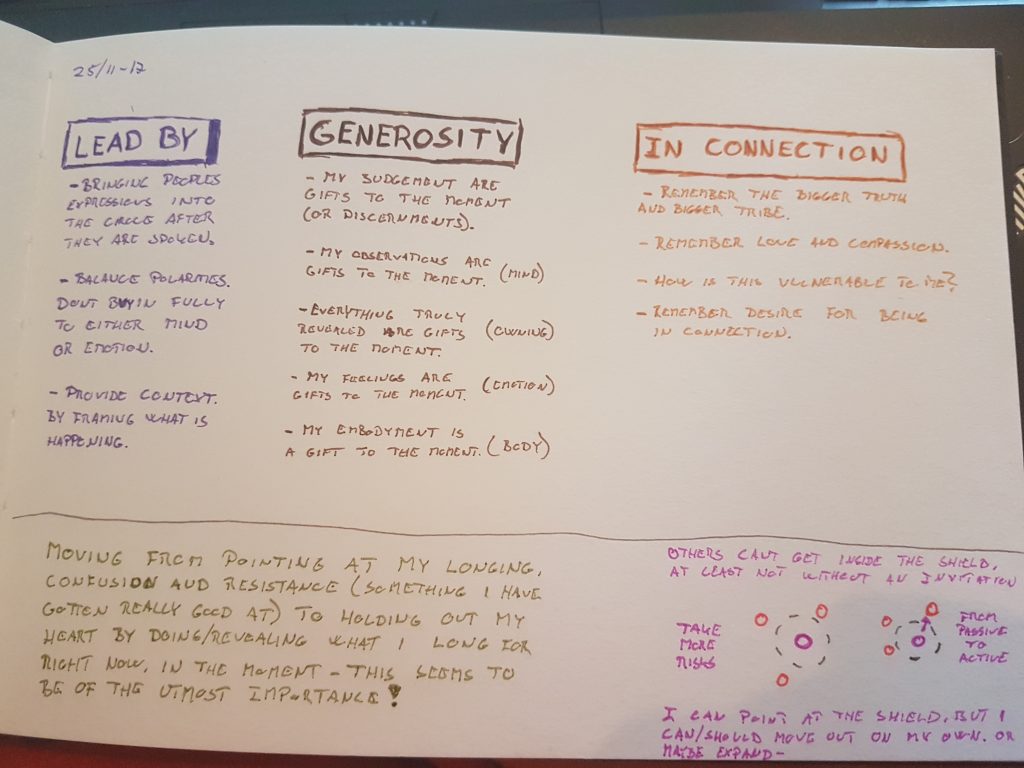 25/11-17
LEAD BY
- BRINGING PEOPLES
EXPRESSIONS INTO
THE CIRCLE AFTER
THEY ARE SPOKEN.
- BALANCE POLARITIES.
DONT BUYIN FULLY
TO EITHER MIND
OR EMOTION.
- PROVIDE CONTEXT.
BY FRAMING WHAT IS
HAPPENING.
GENEROSITY
- MY JUDGEMENT ARE
GIFTS TO THE MOMENT
(OR DISCERNMENTS).
- MY OBSERVATIONS ARE
GIFTS TO THE MOMENT. (MIND)
- EVERYTHING TRULY
REVEALED ARE GIFTS (OWNING)
TO THE MOMENT.
- MY FEELINGS ARE (EMOTION)
GIFTS TO THE MOMENT.
- MY EMBODYMENT IS
A GIFT TO THE MOMENT. (BODY)
IN CONNECTION
- REMEMBER THE BIGGER TRUTH
AND BIGGER TRIBE.
- REMEMBER LOVE AND COMPASSION.
- HOW IS THIS VULNERABLE TO ME?
- REMEMBER DESIRE FOR BEING
IN CONNECTION.
MOVING FROM POINTING AT MY LONGING,
CONFUSION AND RESISTANCE (SOMETHING I HAVE
GOTTEN REALLY GOOD AT) TO HOLDING OUT MY
HEART BY DOING/REVEALING WHAT I LONG FOR
RIGHT NOW, IN THE MOMENT - THIS SEEMS TO
BE OF THE UTMOST IMPORTANCE!
OTHERS CANT GET INSIDE THE SHIELD,
AT LEAST NOT WITHOUT AN INVITATION
TAKE
MORE
RISKS
FROM
PASSIVE
TO
ACTIVE
I CAN POINT AT THE SHIELD, BUT I
CAN/SHOULD MOVE OUT ON MY OWN. OR
MAYBE EXPAND-